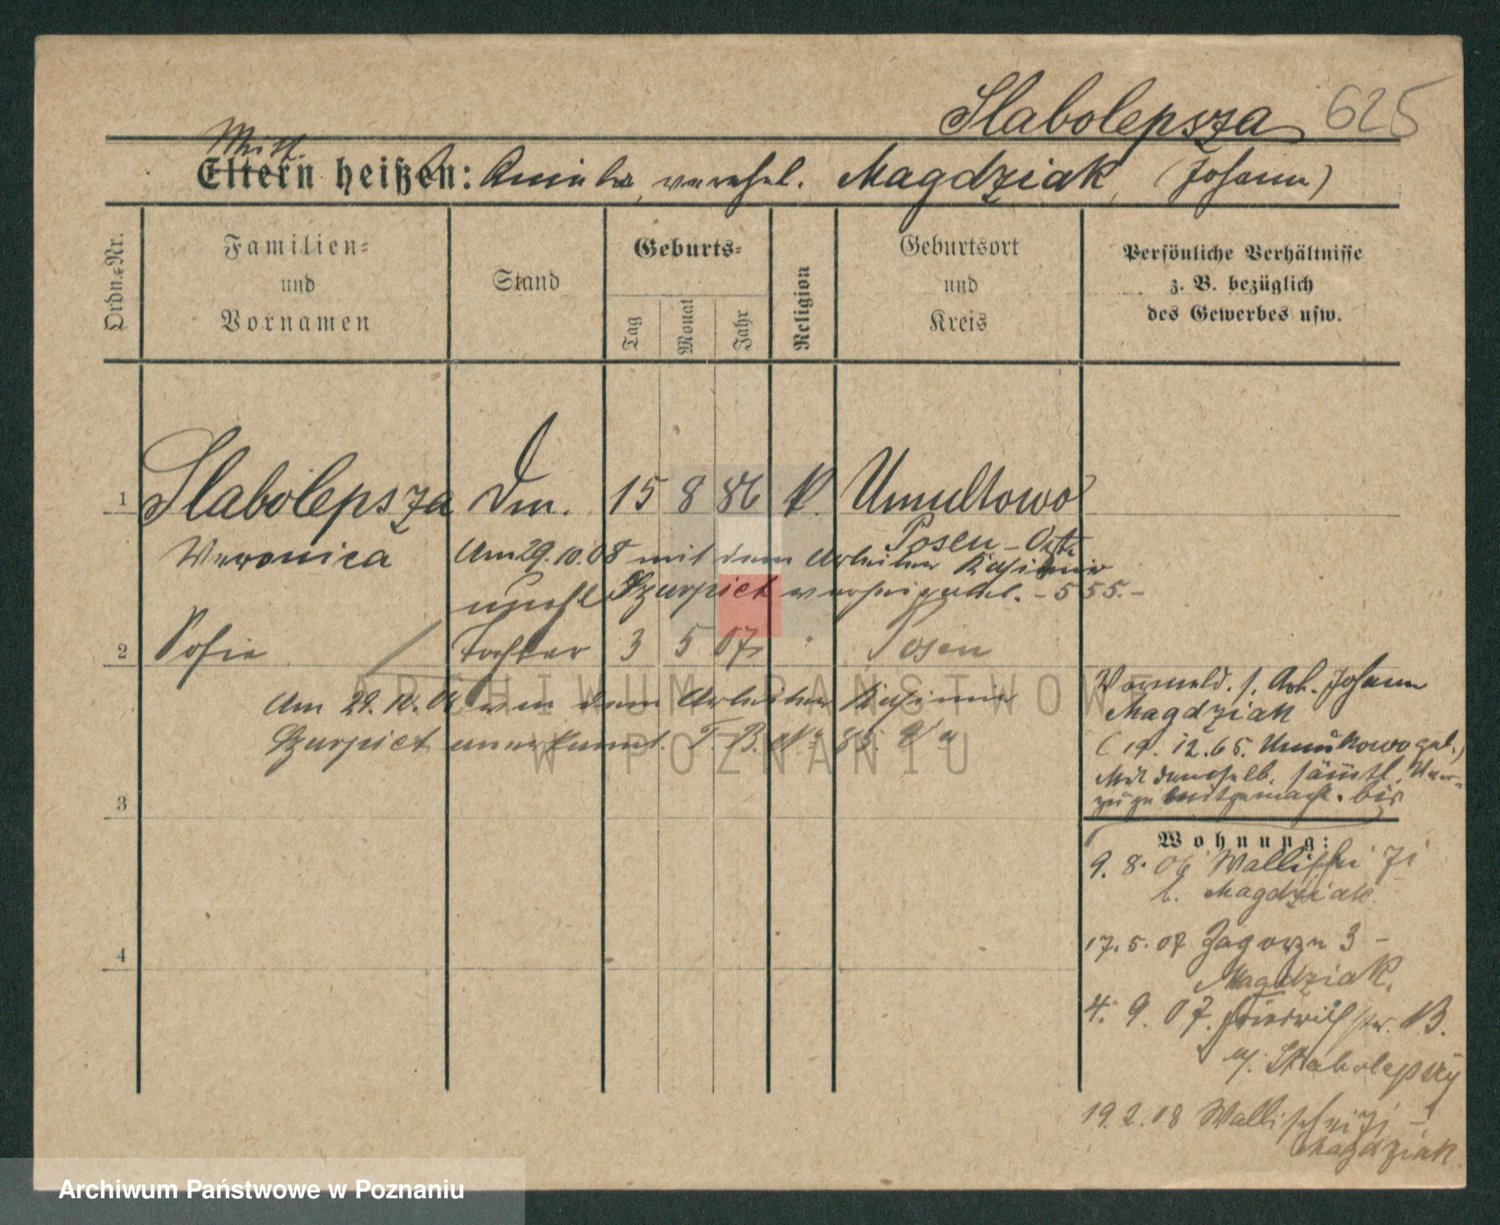 Slabolepsza 625
Mutt.
Eltern heißen: verehel. Magdziak (Johann)
Ordn.-Nr.
Familien-
und
Vornamen
Stand
Geburts-
Tag
Monat
Jahr
Religion
Geburtsort
und
Kreis
Persönliche Verhältnisse
z. B. bezüglich
des Gewerbes usw.
1 Slabolepsza 15 8 86 k. Umultowo
Posen-Ost
Veronica Am 29.10.08 mit dem Arbeiter Kasimir
unehl. Szurpict verheiratet. - 555. -
2 Sofie Tochter 3 5 07 Posen
Am 29.10. von dem Arbeiter Kasimir
Szurpict anerkannt. T. B. № 85
3
4
Vormund. f. Arb. Johann
Magdziak
(17. 12. 65. Umultowo geb.)
Mit demselb. sämtl. Um-
züge mitgemacht. bis
Wohnung:
9. 8. 06 Wallischei 71
b. Magdziak
17. 5. 07 Zagorze 3 -
Magdziak.
4. 9. 07.
Slabolepszy
19. 2. 08 Wallischei 71 -
Magdziak
ARCHIWUM PAŃSTWOWE
W POZNANIU
Archiwum Państwowe w Poznaniu